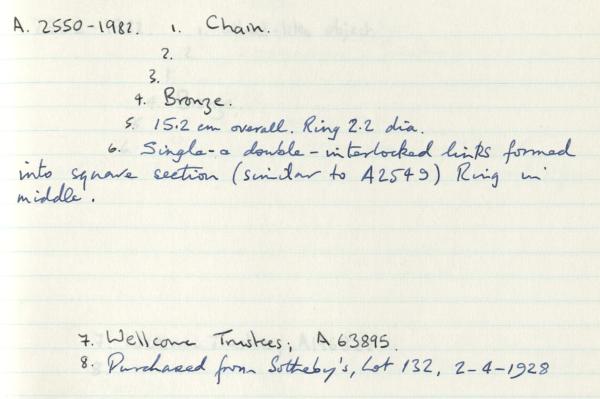 A. 2550-1982. 1. Chain.
2.
3.
4. Bronze.
5. 15.2 cm overall. Ring 2.2 dia.
6. Single-a double-interlocked links formed
into square section (similar to A2549) Ring in
middle.
7. Wellcome Trustees; A 63895.
8. Purchased from Sotheby's, Lot 132, 2-4-1928